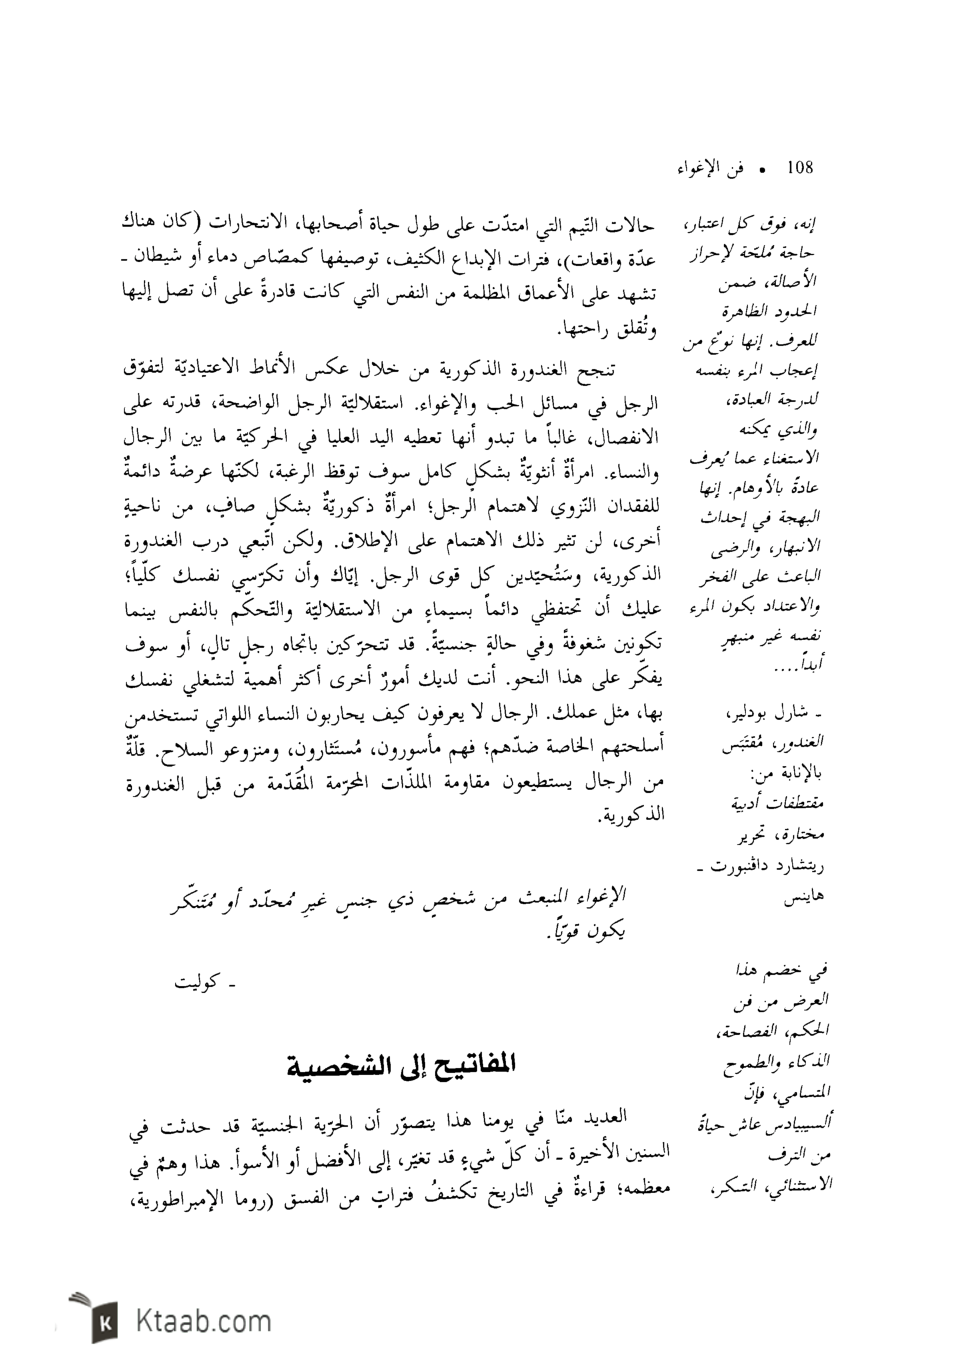 108 • فن الإغواء
إنه، فوق كل اعتبار،
حاجة مُلحّة لإحراز
الأصالة، ضمن
الحدود الظاهرة
للعرف. إنها نوعٌ من
إعجاب المرء بنفسه
لدرجة العبادة،
والذي يمكنه
الاستغناء عما يُعرف
عادةً بالأوهام. إنها
البهجة في إحداث
الانبهار، والرضى
الباعث على الفخر
والاعتداد بكون المرء
نفسه غير منبهرٍ
أبداً....
ـ شارل بودلير،
الغندور، مُقتَبَس
بالإنابة من:
مقتطفات أدبية
مختارة، تحرير
ريتشارد داڤنبورت ـ
هاينس
في خضم هذا
العرض من فن
الحكم، الفصاحة،
الذكاء والطموح
المتسامي، فإنّ
ألسيبيادس عاش حياةً
من الترف
الاستثنائي، السّكر،
حالات التّيم التي امتدّت على طول حياة أصحابها، الانتحارات (كان هناك
عدّة واقعات)، فترات الإبداع الكثيف، توصيفها كمصّاص دماء أو شيطان ـ
تشهد على الأعماق المظلمة من النفس التي كانت قادرةً على أن تصل إليها
وتُقلق راحتها.
تنجح الغندورة الذكورية من خلال عكس الأنماط الاعتياديّة لتفوّق
الرجل في مسائل الحب والإغواء. استقلاليّة الرجل الواضحة، قدرته على
الانفصال، غالباً ما تبدو أنها تعطيه اليد العليا في الحركيّة ما بين الرجال
والنساء. امرأةٌ أنثويّةٌ بشكلٍ كامل سوف توقظ الرغبة، لكنّها عرضةٌ دائمةٌ
للفقدان النّزوي لاهتمام الرجل؛ امرأةٌ ذكوريّةٌ بشكلٍ صافٍ، من ناحيةٍ
أخرى، لن تثير ذلك الاهتمام على الإطلاق. ولكن اتّبعي درب الغندورة
الذكورية، وسَتُحيّدين كل قوى الرجل. إيّاك وأن تكرّسي نفسك كلّياً؛
عليك أن تحتفظي دائماً بسيماءٍ من الاستقلاليّة والتّحكّم بالنفس بينما
تكونين شغوفةً وفي حالةٍ جنسيّةً. قد تتحرّكين باتجاه رجلٍ تالٍ، أو سوف
يفكّر على هذا النحو. أنت لديك أمورٌ أخرى أكثر أهمية لتشغلي نفسك
بها، مثل عملك. الرجال لا يعرفون كيف يحاربون النساء اللواتي تستخدمن
أسلحتهم الخاصة ضدّهم؛ فهم مأسورون، مُستَثارون، ومنزوعو السلاح. قلّةٌ
من الرجال يستطيعون مقاومة الملذّات المحرّمة المُقدّمة من قبل الغندورة
الذكورية.
الإغواء المنبعث من شخصٍ ذي جنسٍ غيرِ مُحدّد أو مُتَنكّر
يكون قويّاً.
ـ كوليت
المفاتيح إلى الشخصية
العديد منّا في يومنا هذا يتصوّر أن الحرّية الجنسيّة قد حدثت في
السنين الأخيرة ـ أن كلّ شيءٍ قد تغيّر، إلى الأفضل أو الأسوأ. هذا وهمٌ في
معظمه؛ قراءةٌ في التاريخ تكشفُ فتراتٍ من الفسق (روما الإمبراطورية،
K Ktaab.com